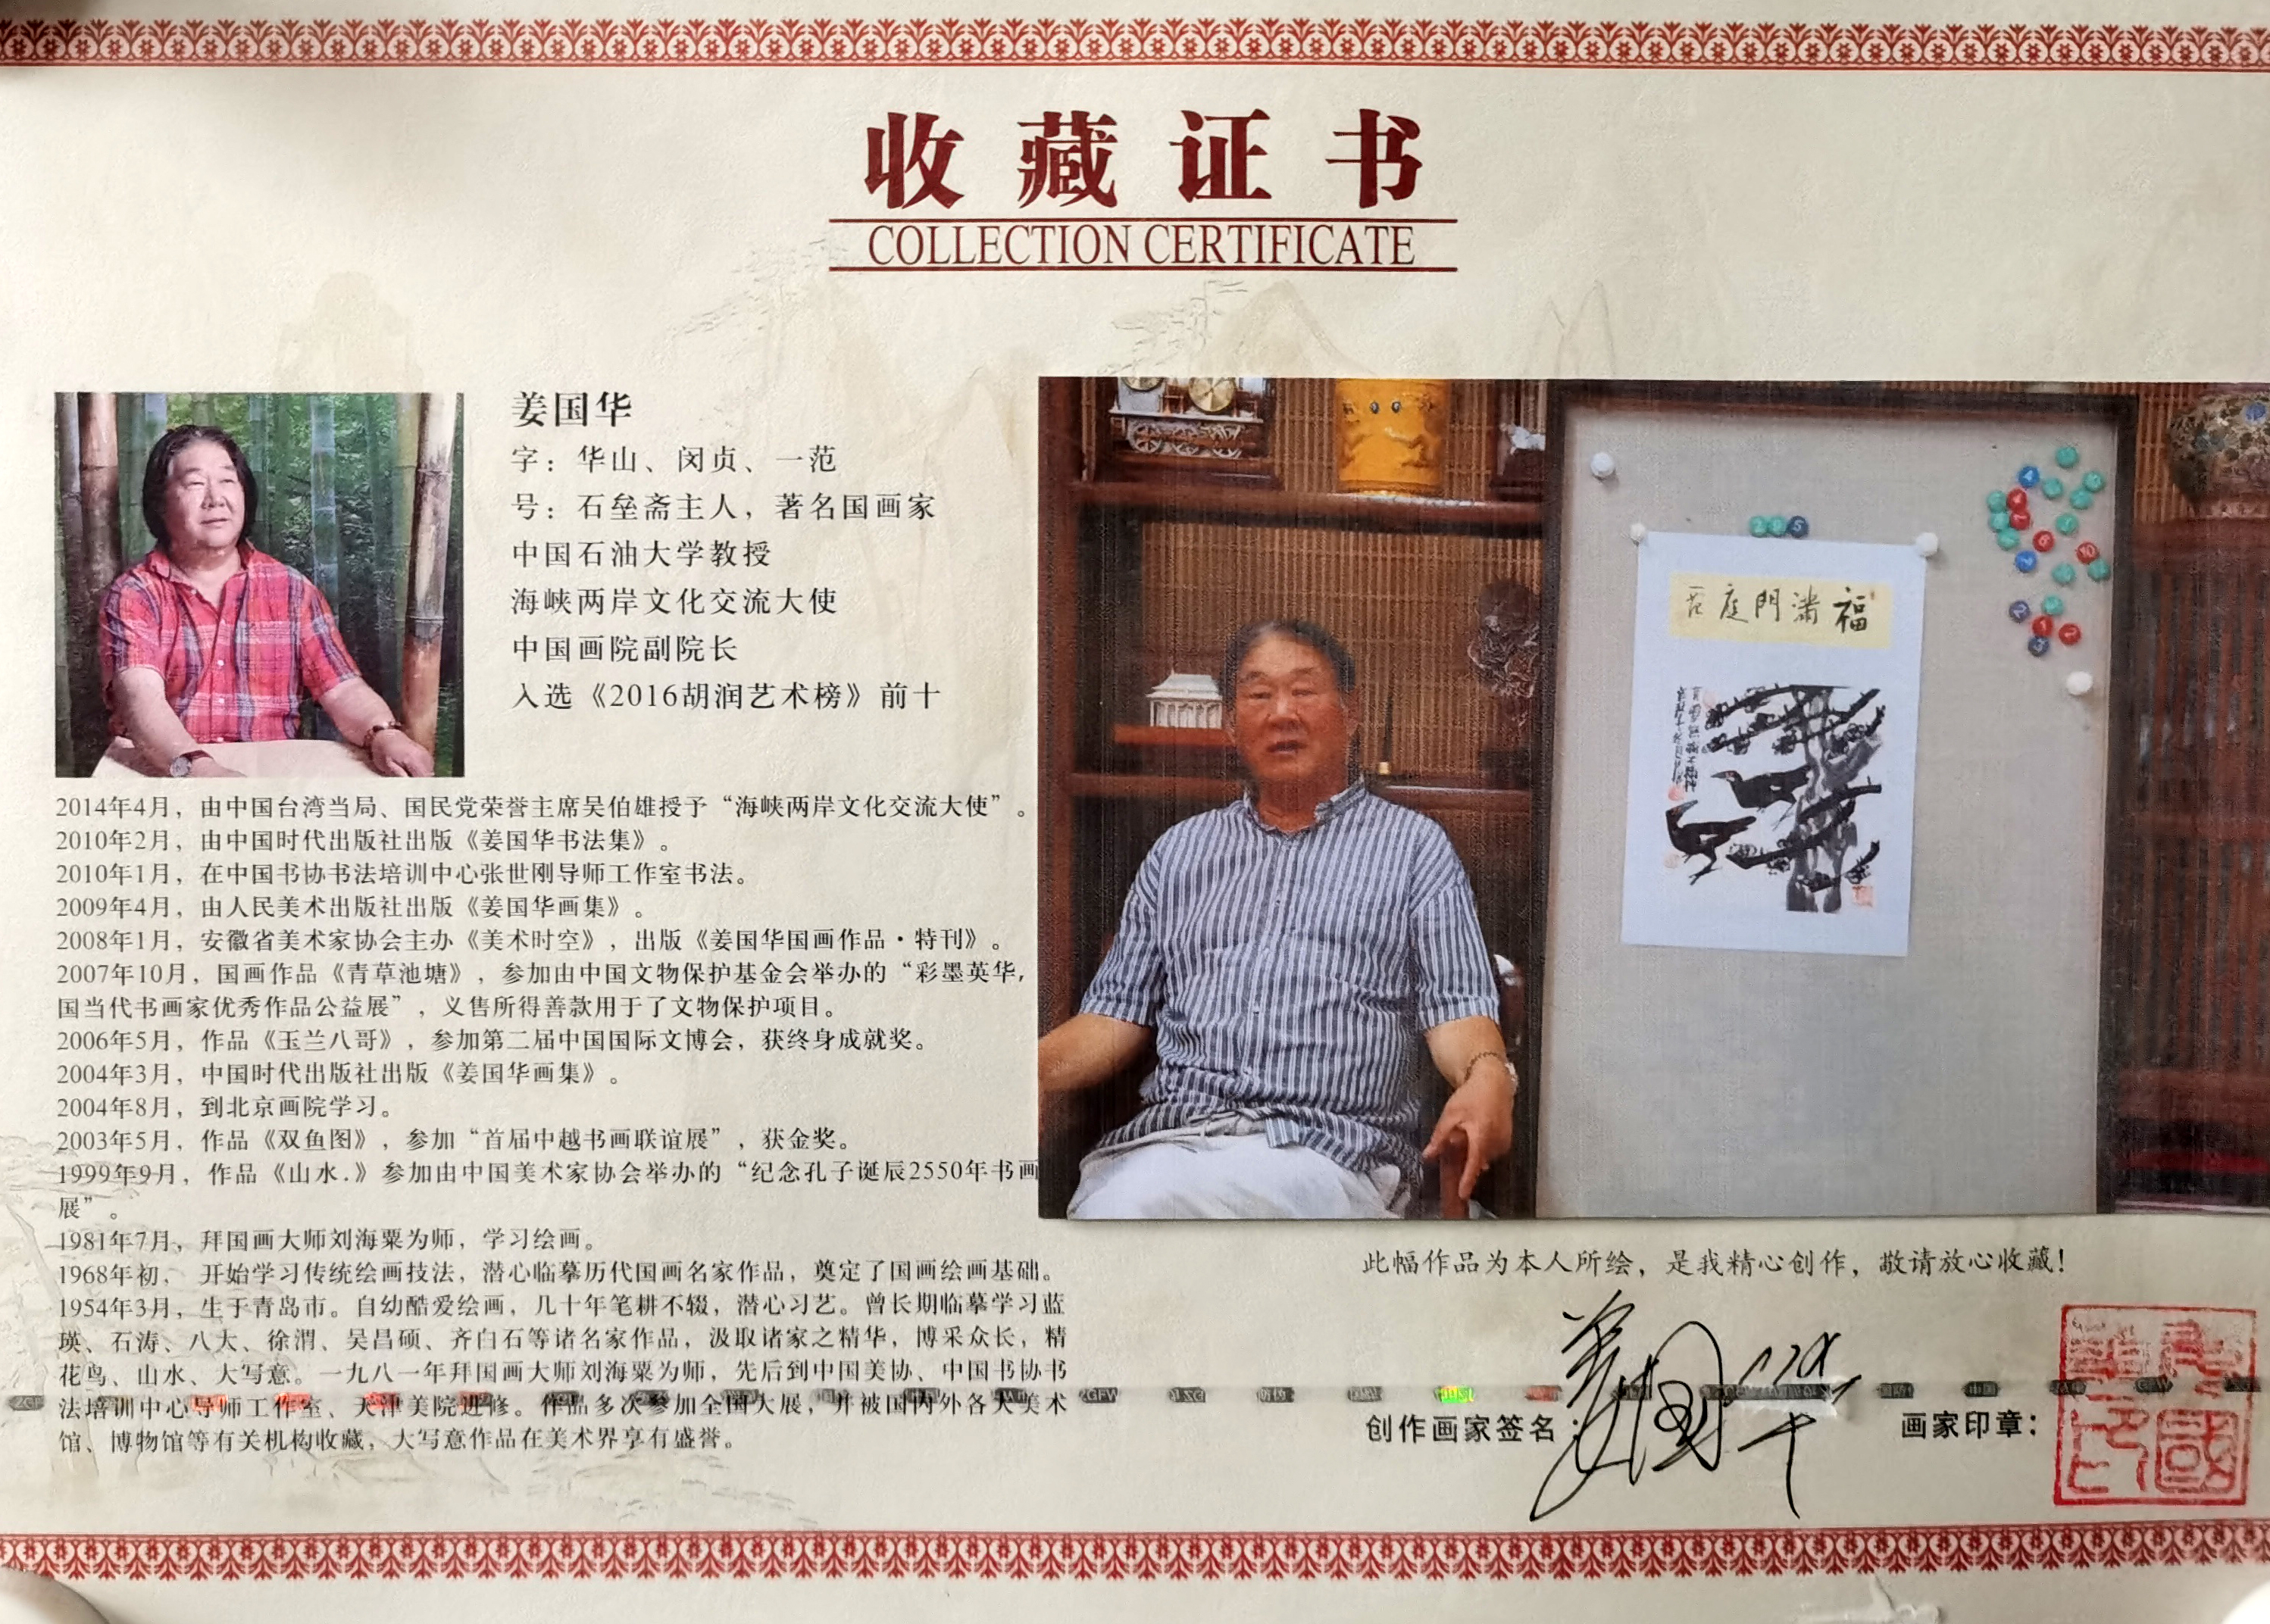 收藏证书
COLLECTION CERTIFICATE
姜国华
字：华山、闵贞、一范
号：石垒斋主人，著名国画家
中国石油大学教授
海峡两岸文化交流大使
中国画院副院长
入选《2016胡润艺术榜》前十
2014年4月，由中国台湾当局、国民党荣誉主席吴伯雄授予“海峡两岸文化交流大使”。
2010年2月，由中国时代出版社出版《姜国华书法集》。
2010年1月，在中国书协书法培训中心张世刚导师工作室书法。
2009年4月，由人民美术出版社出版《姜国华画集》。
2008年1月，安徽省美术家协会主办《美术时空》，出版《姜国华国画作品·特刊》。
2007年10月，国画作品《青草池塘》，参加由中国文物保护基金会举办的“彩墨英华，
国当代书画家优秀作品公益展”，义售所得善款用于了文物保护项目。
2006年5月，作品《玉兰八哥》，参加第二届中国国际文博会，获终身成就奖。
2004年3月，中国时代出版社出版《姜国华画集》。
2004年8月，到北京画院学习。
2003年5月，作品《双鱼图》，参加“首届中越书画联谊展”，获金奖。
1999年9月，作品《山水.》参加由中国美术家协会举办的“纪念孔子诞辰2550年书画
展”。
1981年7月，拜国画大师刘海粟为师，学习绘画。
1968年初，　开始学习传统绘画技法，潜心临摹历代国画名家作品，奠定了国画绘画基础。
1954年3月，生于青岛市。自幼酷爱绘画，几十年笔耕不辍，潜心习艺。曾长期临摹学习蓝
瑛、石涛、八大、徐渭、吴昌硕、齐白石等诸名家作品，汲取诸家之精华，博采众长，精
花鸟、山水、大写意。一九八一年拜国画大师刘海粟为师，先后到中国美协、中国书协书
法培训中心导师工作室、天津美院进修。作品多次参加全国大展，并被国内外各大美术
馆、博物馆等有关机构收藏，大写意作品在美术界享有盛誉。
福满門庭
此幅作品为本人所绘，是我精心创作，敬请放心收藏！
创作画家签名：
姜国华
画家印章：